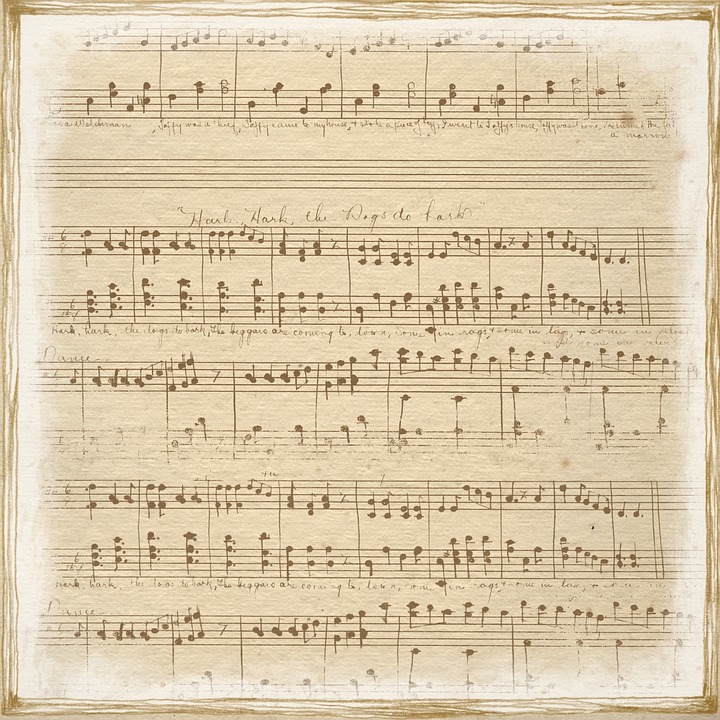 was a Welchman, Taffy was a thief, Taffy came to my house, & stole a piece of beef, I went to Taffy's house, Taffy wasn't home,
a marrow
"Hark, Hark, the Dogs do bark"
Hark, hark, the dogs do bark, The beggars are coming to town, Some in rags, & some in
Dance
Hark, hark, the dogs do bark, The beggars are coming to town, in rags, & some in
Dance